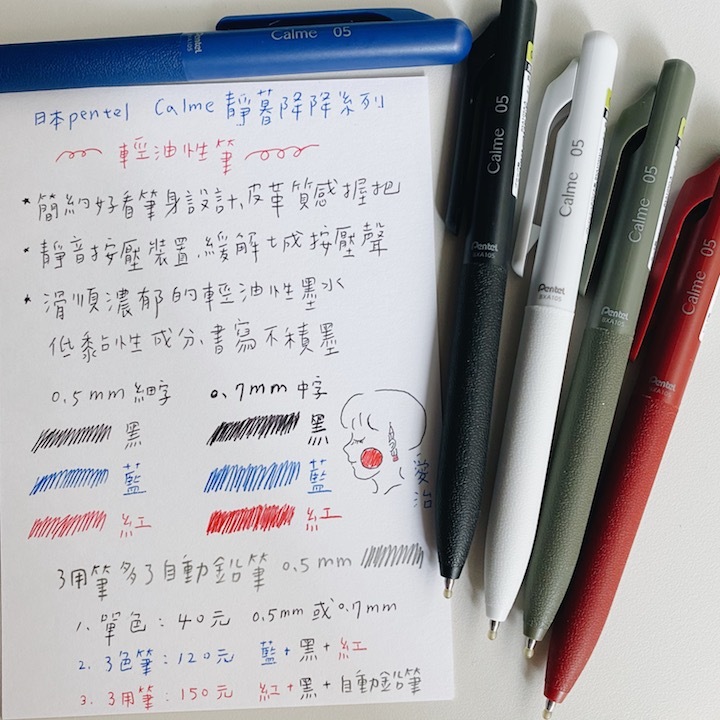 Pentel
Calme 05
日本pentel Calme 靜暮降降系列
輕油性筆
* 簡約好看筆身設計,皮革質感握把
* 靜音按壓裝置.緩解七成按壓聲
* 滑順濃郁的輕油性墨水
低黏性成分.書寫不積墨
0.5mm 細字 0.7mm 中字
黑 黑
藍 藍
紅 紅
愛治
3用筆多了自動鉛筆 0.5mm
1. 單色:40元 0.5mm 或 0.7mm
2. 3色筆:120元 藍+黑+紅
3. 3用筆:150元 紅+黑+自動鉛筆
Calme 05
Pentel
BXA105
Calme 05
Pentel
BXA105
Calme 05
Pentel
BXA105
Calme 05
Pentel
BXA105